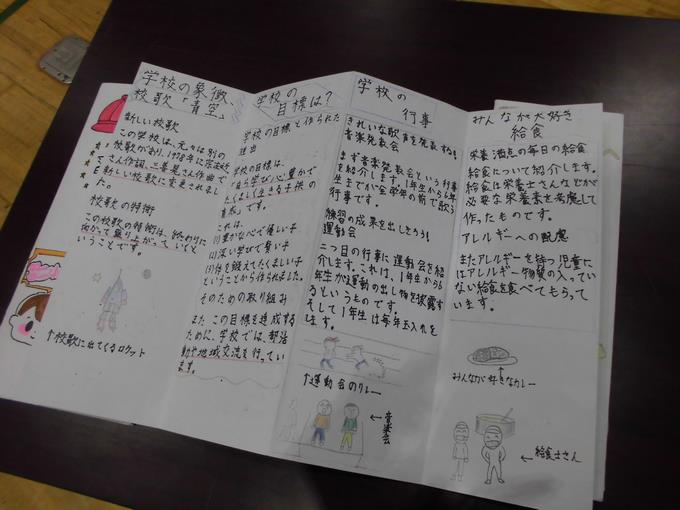 学校の象徴、
校歌「青空」
新しい校歌
この学校は、元々は別の
校歌があり、1978年に
さん作詞、三善晃さん作曲で
新しい校歌に変更されまし
た。
校歌の特徴
この校歌の特徴は、終わりに
向かって盛り上がっていくと
いうことです。
↑校歌に出てくるロケット
学校の
目標は?
学校の目標と作られた
理由
学校の目標は、
「自ら学び心豊かで
たくましく生きる子供の
育成」です。
これは、
(1)豊かな心で優しい子
(2)深い学びで賢い子
(3)体を鍛えてたくましい子
ということから作られました。
そのための取り組み
また この目標を達成する
ために、学校では、部活
動や地域交流を行ってい
ます。
学校の
行事
きれいな歌声を発表する!
音楽発表会
まず音楽発表会という行事
を紹介します。1年生から6年
生までが全学年の前で歌う
行事です。
練習の成果を出しきろう!
運動会
二つ目の行事に運動会を紹
介します。これは、1年生から6
年生が運動の出し物を披露す
るというものです。
そして1年生は毎年玉入れを
します。
↑運動会のリレー
←音楽会
みんなが大好き
給食
栄養満点の毎日の給食
給食について紹介します。
給食は栄養士さんなどが
必要な栄養素を考慮して
作ったものです。
アレルギーへの配慮
またアレルギーを持つ児童に
はアレルギー物質の入ってい
ない給食を食べてもらって
います。
みんなが好きなカレー
←給食士さん